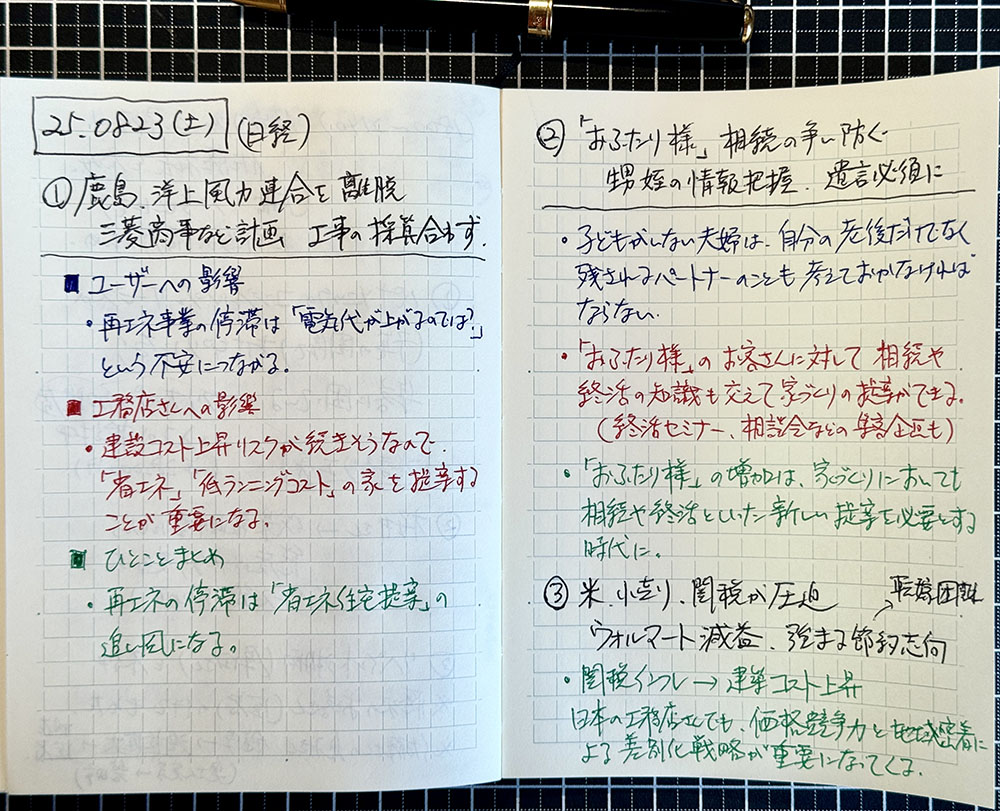 25.0823(土) (日経)
① 鹿島、洋上風力連合を離脱
三菱商事など計画 工事の採算合わず.
■ ユーザーへの影響
・再エネ事業の停滞は「電気代が上がるのでは?」
という不安につながる。
■ 工務店さんへの影響
・建設コスト上昇リスクが続きそうなので.
「省エネ」「低ランニングコスト」の家を提案する
ことが重要になる。
■ ひとことまとめ
・再エネの停滞は「省エネ住宅提案」の
追い風になる。
②「おふたり様」相続の争い防ぐ
甥姪の情報把握、遺言必須に
・子どもがいない夫婦は、自分の老後だけでなく
残されるパートナーのことも考えておかなければ
ならない.
・「おふたり様」のお客さんに対して相続や
終活の知識も交えて家づくりの提案ができる。
(終活セミナー、相談会などの集客企画も)
・「おふたり様」の増加は、家づくりにおいても
相続や終活といった新しい提案を必要とする
時代に。
③ 米、小売り、関税が圧迫
転嫁困難
ウォルマート減益、強まる節約志向
・関税インフレ→建築コスト上昇
日本の工務店さんでも、価格競争力と地域密着に
よる差別化戦略が重要になってくる.